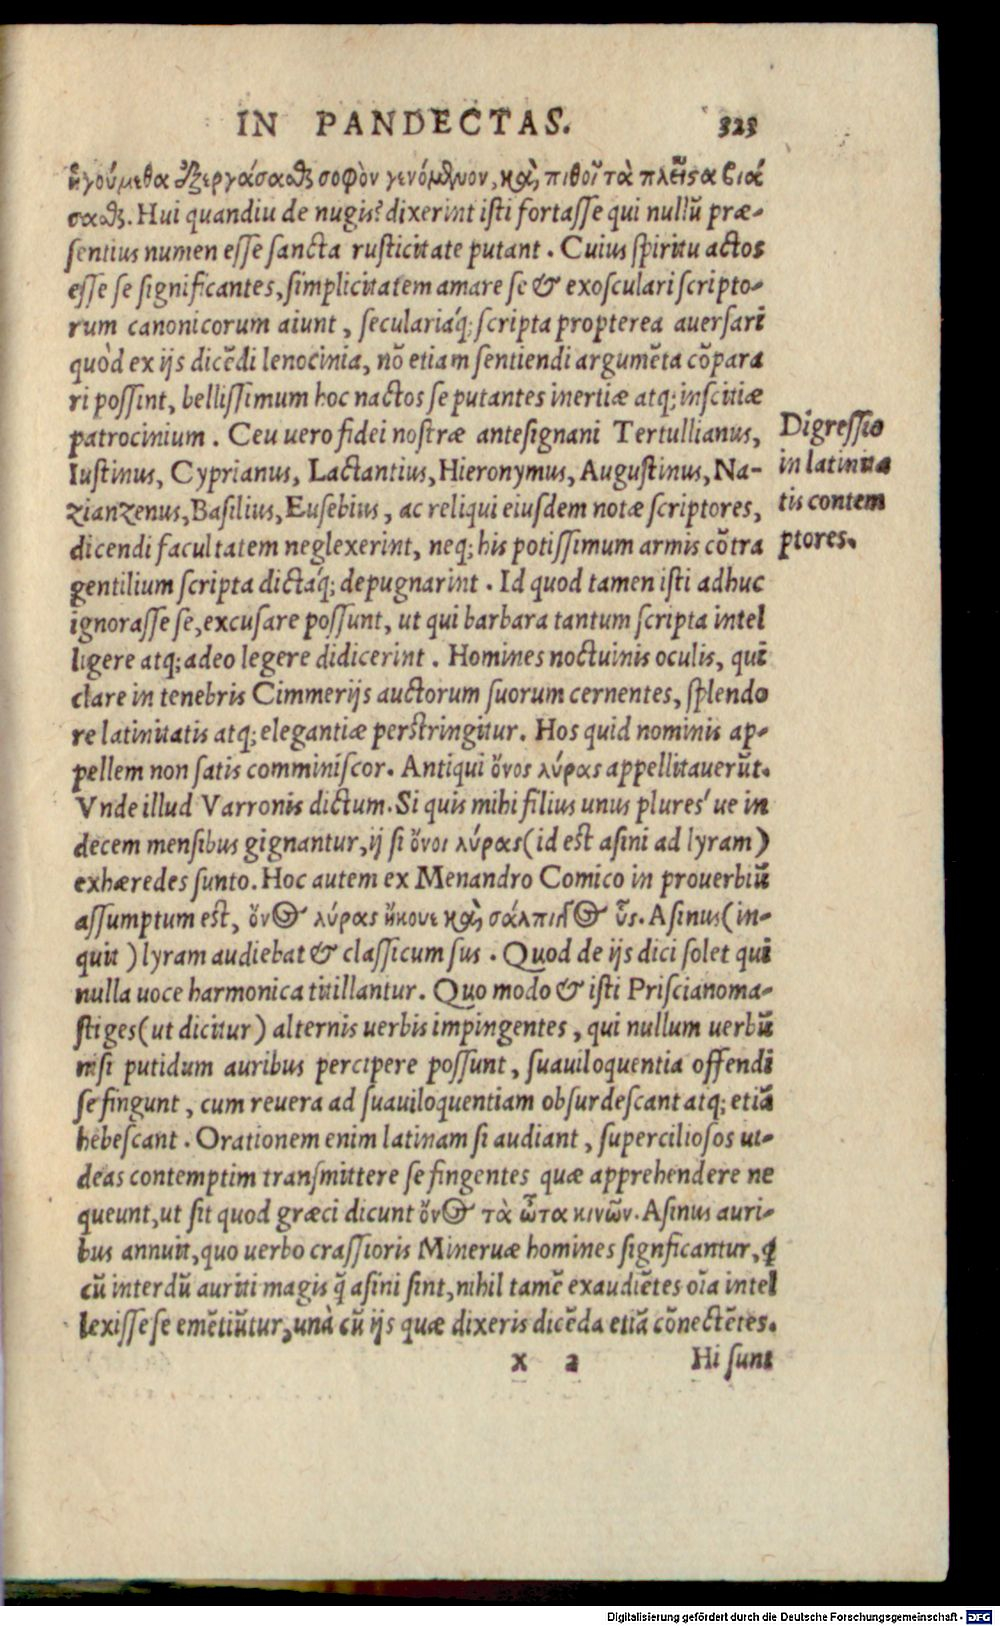 IN PANDECTAS. 323
ἡγούμεθα ἐξεργάσασθαι σοφὸν γενόμενον, καὶ πιθοῦ τὰ πλεῖϛα βιά
σασθαι. Hui quandiu de nugis? dixerint isti fortasse qui nullũ præ-
sentius numen esse sancta rusticitate putant. Cuius spiritu actos
esse se significantes, simplicitatem amare se & exosculari scripto-
rum canonicorum aiunt, seculariáq; scripta propterea auersari
quòd ex ijs dicẽdi lenocinia, nõ etiam sentiendi argumẽta cõpara
ri possint, bellissimum hoc nactos se putantes inertiæ atq; inscitiæ
patrocinium. Ceu uero fidei nostræ antesignani Tertullianus,
Iustinus, Cyprianus, Lactantius, Hieronymus, Augustinus, Na-
zianzenus, Basilius, Eusebius, ac reliqui eiusdem notæ scriptores,
dicendi facultatem neglexerint, neq; his potissimum armis cõtra
gentilium scripta dictáq; depugnarint. Id quod tamen isti adhuc
ignorasse se, excusare possunt, ut qui barbara tantum scripta intel
ligere atq; adeo legere didicerint. Homines noctuinis oculis, qui
clare in tenebris Cimmerijs auctorum suorum cernentes, splendo
re latinitatis atq; elegantiæ perstringitur. Hos quid nominis ap-
pellem non satis comminiscor. Antiqui ὄνος λύρας appellitauerũt.
Vnde illud Varronis dictum. Si quis mihi filius unus plures ue in
decem mensibus gignantur, ij si ὄνοι λύρας (id est asini ad lyram)
exhæredes sunto. Hoc autem ex Menandro Comico in prouerbiũ
assumptum est, ὄνος λύρας ἤκουε καὶ σάλπιγγος ὗς. Asinus (in-
quit) lyram audiebat & classicum sus. Quod de ijs dici solet qui
nulla uoce harmonica titillantur. Quo modo & isti Priscianoma-
stiges (ut dicitur) alternis uerbis impingentes, qui nullum uerbũ
nisi putidum auribus percipere possunt, suauiloquentia offendi
se fingunt, cum reuera ad suauiloquentiam obsurdescant atq; etiã
hebescant. Orationem enim latinam si audiant, superciliosos ui-
deas contemptim transmittere se fingentes quæ apprehendere ne
queunt, ut sit quod græci dicunt ὄνος τὰ ὦτα κινῶν. Asinus auri-
bus annuit, quo uerbo crassioris Mineruæ homines signficantur, q̃
cũ interdũ auriti magis q̃ asini sint, nihil tamẽ exaudiẽtes oĩa intel
lexisse se emẽtiũtur, unà cũ ijs quæ dixeris dicẽda etiã cõnectẽtes.
x 2 Hi sunt
Digressio
in latinita
tis contem
ptores.
Digitalisierung gefördert durch die Deutsche Forschungsgemeinschaft - DFG